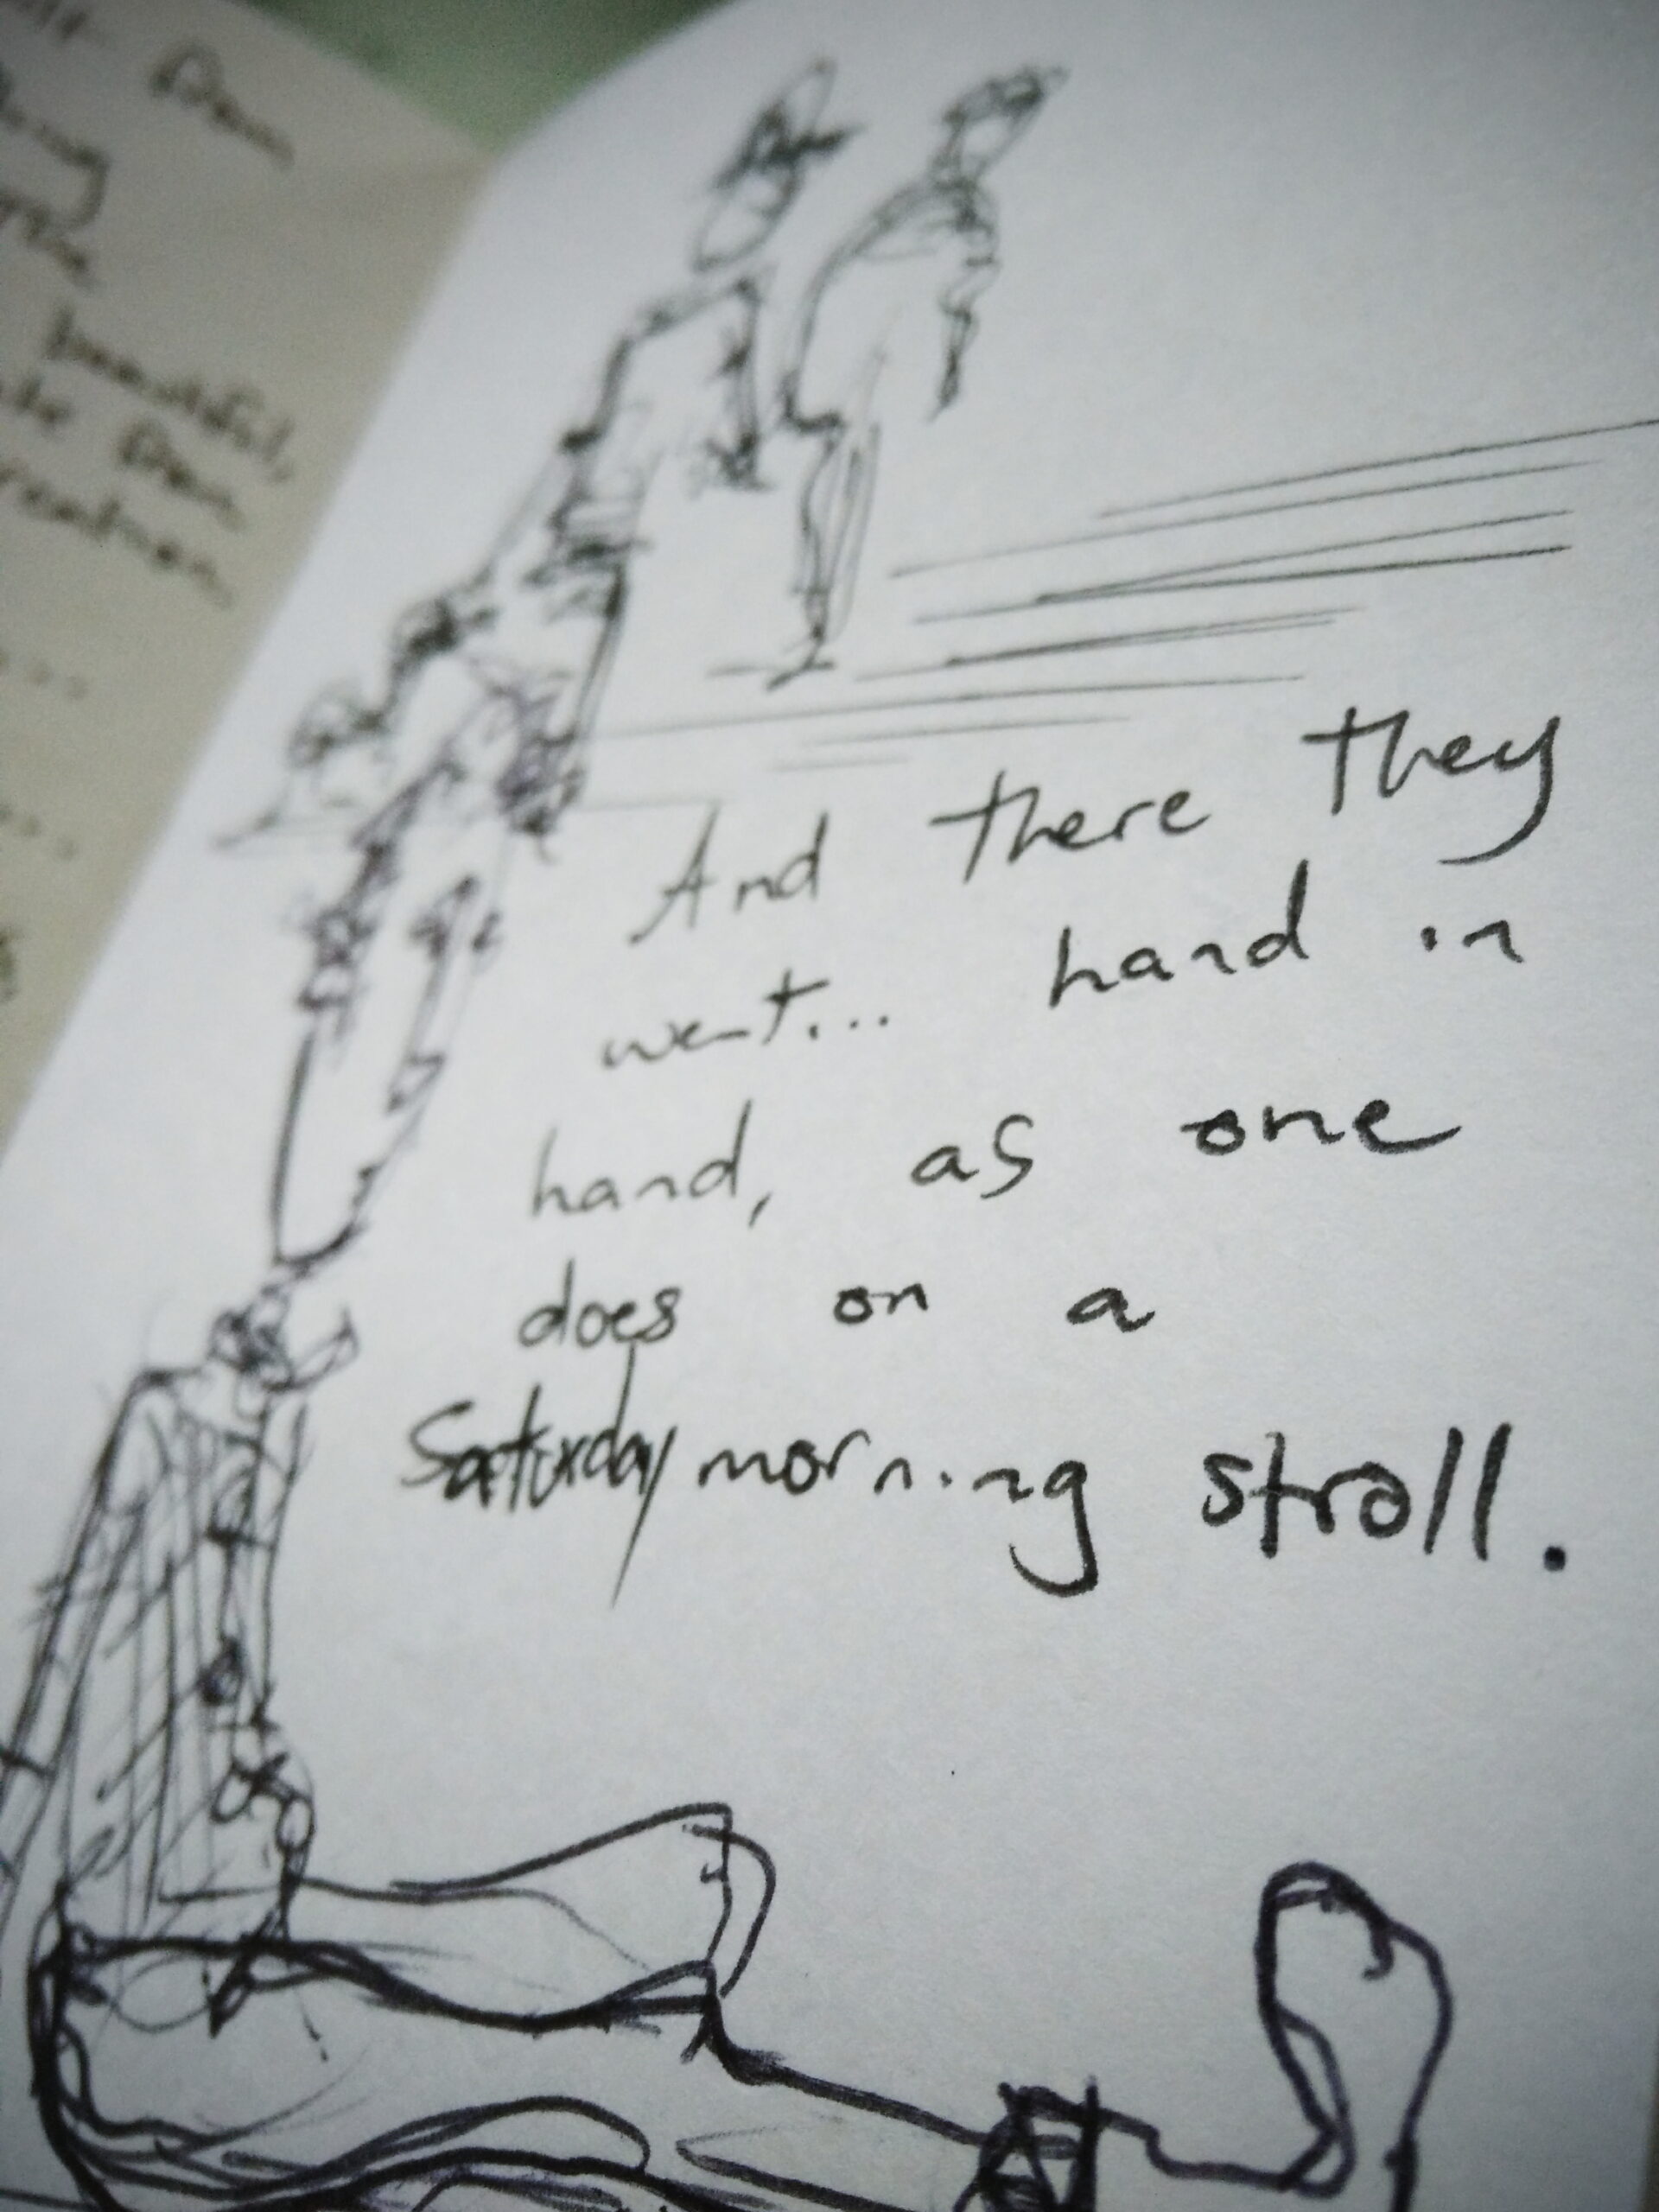 And there they
went... hand in
hand, as one
does on a
Saturday morning stroll.